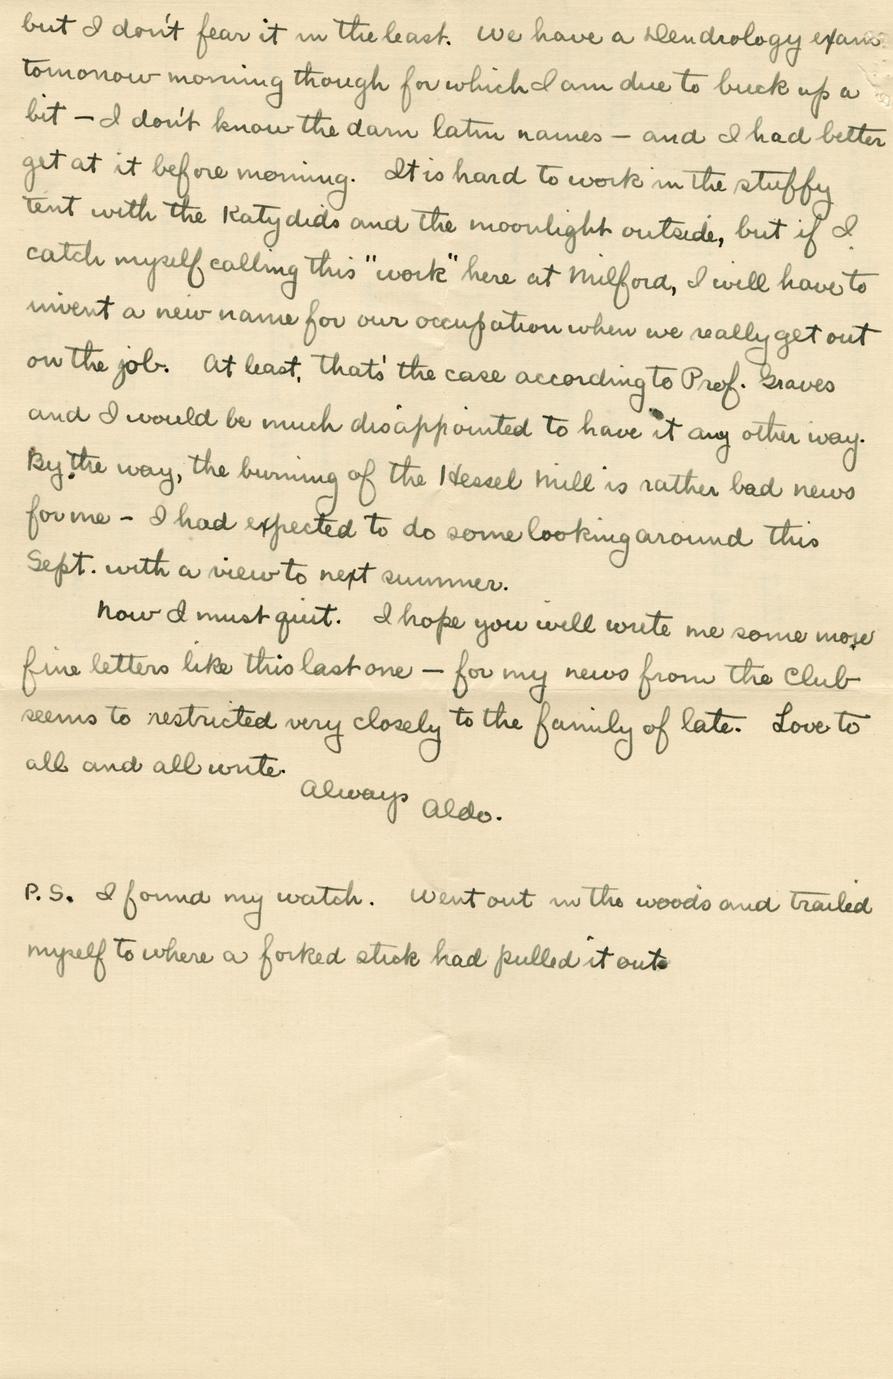 but I don't fear it in the least. We have a Dendrology exam
tomorrow morning though for which I am due to buck up a
bit — I don't know the darn latin names — and I had better
get at it before morning. It is hard to work in the stuffy
tent with the Katydids and the moonlight outside, but if I
catch myself calling this "work" here at Milford, I will have to
invent a new name for our occupation when we really get out
on the job. At least, that's the case according to Prof. Graves
and I would be much disappointed to have it any other way.
By the way, the burning of the Hessel Mill is rather bad news
for me – I had expected to do some looking around this
Sept. with a view to next summer.
Now I must quit. I hope you will write me some more
fine letters like this last one — for my news from the Club
seems to restricted very closely to the family of late. Love to
all and all write.
Always Aldo.
P.S. I found my watch. Went out in the woods and trailed
myself to where a forked stick had pulled it out.